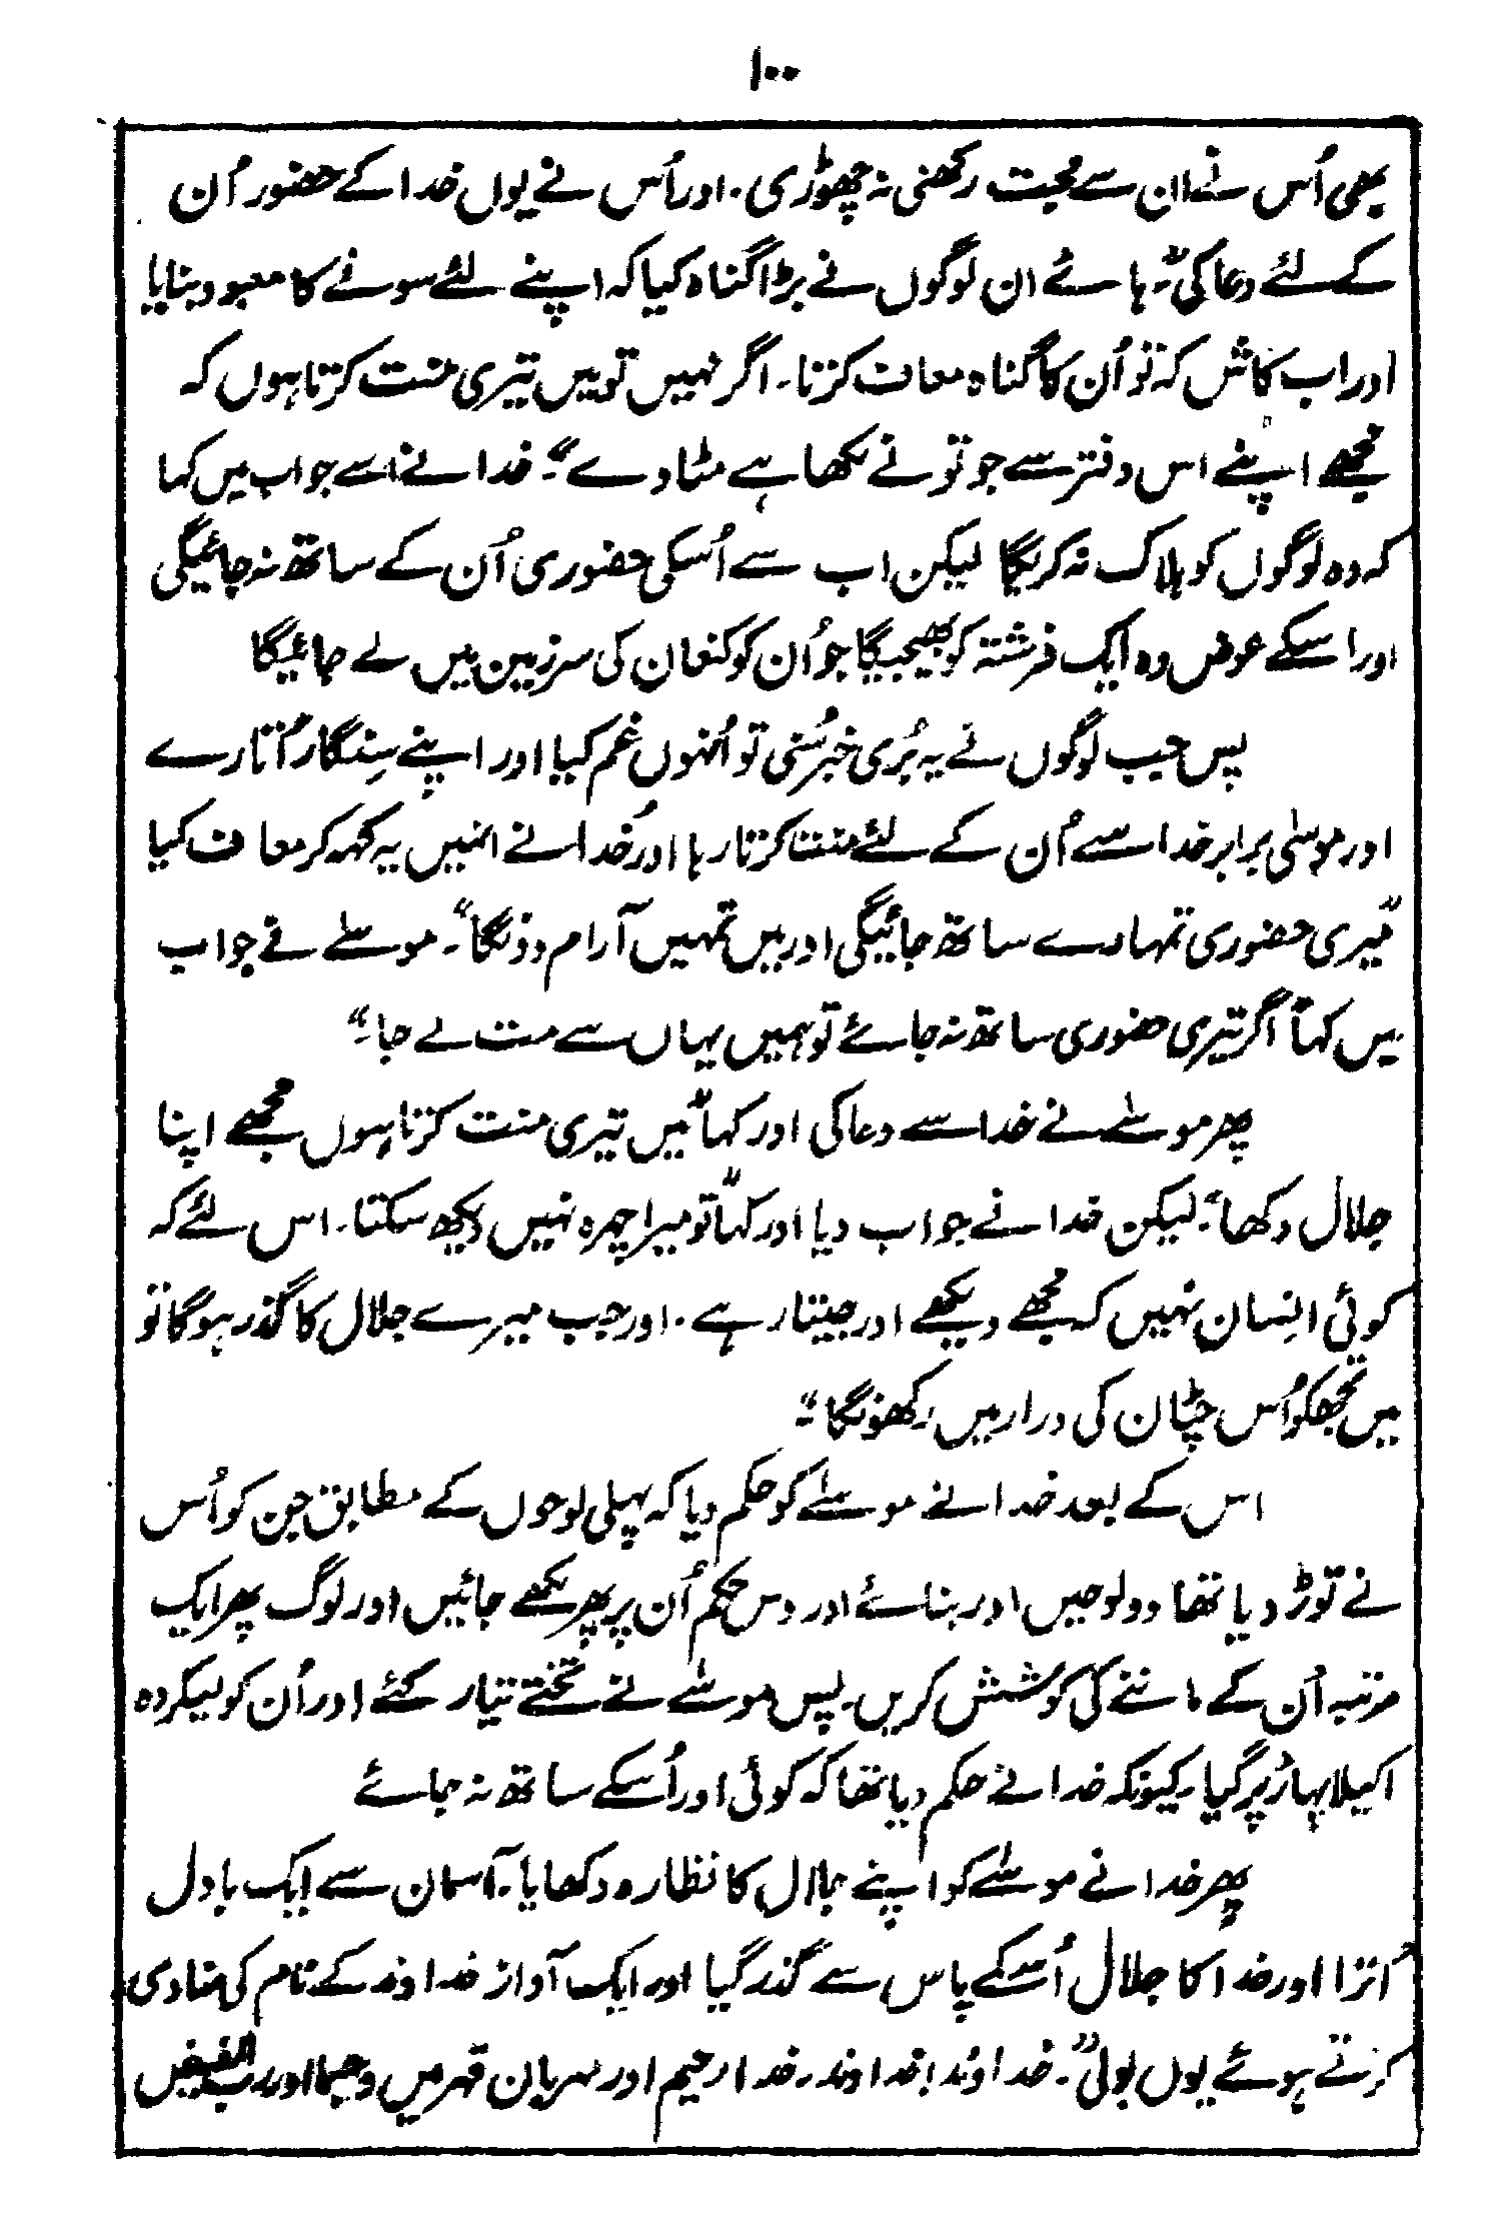 ۱۰۰
بھی اُس نے ان سے محبت رکھنی نہ چھوڑی۔ اور اُس نے یوں خدا کے حضور اُن
کے لئے دعا کی "۔ ہائے ان لوگوں نے بڑا گناہ کیا کہ اپنے لئے سونے کا معبود بنایا
اور اب کاش کہ تو اُن کا گناہ معاف کرتا۔ اگر نہیں تو میں تیری منت کرتا ہوں کہ
مجھے اپنے اس دفتر سے جو تو نے لکھا ہے مٹا دے"۔ خدا نے اسے جواب میں کہا
کہ وہ لوگوں کو ہلاک نہ کریگا لیکن اب سے اُسکی حضوری اُن کے ساتھ نہ جائیگی
اور اسکے عوض وہ ایک فرشتہ کو بھیجیگا جو اُن کو کنعان کی سرزمین میں لے جائیگا
پس جب لوگوں نے یہ بُری خبر سُنی تو اُنہوں غم کیا اور اپنے سِنگار اُتارے
اور موسٰی برابر خدا سے اُن کے لئے منت کرتا رہا اور خُدا نے انہیں یہ کہہ کر معاف کیا
"میری حضوری تمہارے ساتھ جائیگی اور میں تمہیں آرام دونگا"۔ موسٰے نے جواب
میں کہا "اگر تیری حضوری ساتھ نہ جائے تو ہمیں یہاں سے مت لے جا"۔
پھر موسٰے نے خدا سے دعا کی اور کہا "میں تیری منت کرتا ہوں مجھے اپنا
جلال دکھا"۔ لیکن خدا نے جواب دیا اور کہا "تو میرا چہرہ نہیں دیکھ سکتا۔ اس لئے کہ
کوئی انِسان نہیں کہ مجھے دیکھے اور جیتا رہے۔ اور جب میرے جلال کا گذر ہوگا تو
میں تجھکو اُس چٹان کی درار میں رکھونگا"۔
اس کے بعد خدا نے موسٰے کو حکم دیا کہ پہلی لوحوں کے مطابق جن کو اُس
نے توڑ دیا تھا دو لوحیں اور بنائے اور دس حکم اُن پر پھر لکھے جائیں اور لوگ پھر ایک
مرتبہ اُن کے ماننے کی کوشش کریں۔ پس موسٰے نے تختے تیار کئے اور اُن کو لیکر وہ
اکیلا پہاڑ پر گیا۔ کیونکہ خدا نے حکم دیا تھا کہ کوئی اور اُسکے ساتھ نہ جائے
پھر خدا نے موسٰے کو اپنے جلال کا نظارہ دکھایا۔ آسمان سے ایک بادل
اُترا اور خدا کا جلال اُسکے پاس سے گذر گیا اور ایک آواز خداوند کے نام کی منادی
کرتے ہوئے یوں بولی "۔ خداوند خداوند۔ خدا رحیم اور مہربان قہر میں دھیما اور رب الفیض